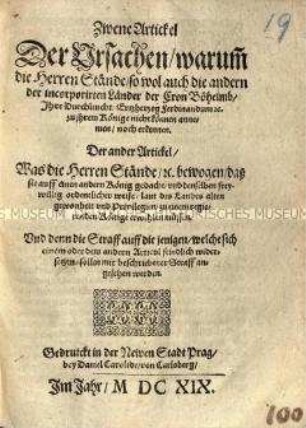 19
Zwene Artickel
Der Ursachen/ warum̃
die Herren Stände/ so wol auch die andern
der incorporirten Länder der Cron Böheimb/
Ihre Durchleucht: Ertzhertzog Ferdinandum ꝛc.
zu jhrem Könige nicht können anne-
men/ noch erkennen.
Der ander Artickel/
Was die Herren Stände/ ꝛc. bewogen/ daß
sie auff einen andern König gedacht/ vnd denselben frey-
willig ordentlicher weise/ laut des Landes alten
gewonheit vnd Privilegien zu einem regie-
renden Könige erwehlen müssen.
Und denn die Straff auff die jenigen/ welche sich
einem oder dem andern Artickel feindlich wider-
setzen/ sollen mit beschriebener Straff an-
gesehen werden.
Gedruckt in der Newen Stadt Prag/
bey Daniel Carolide/ von Carlsberg/
Im Jahr/ M DC XIX.
100